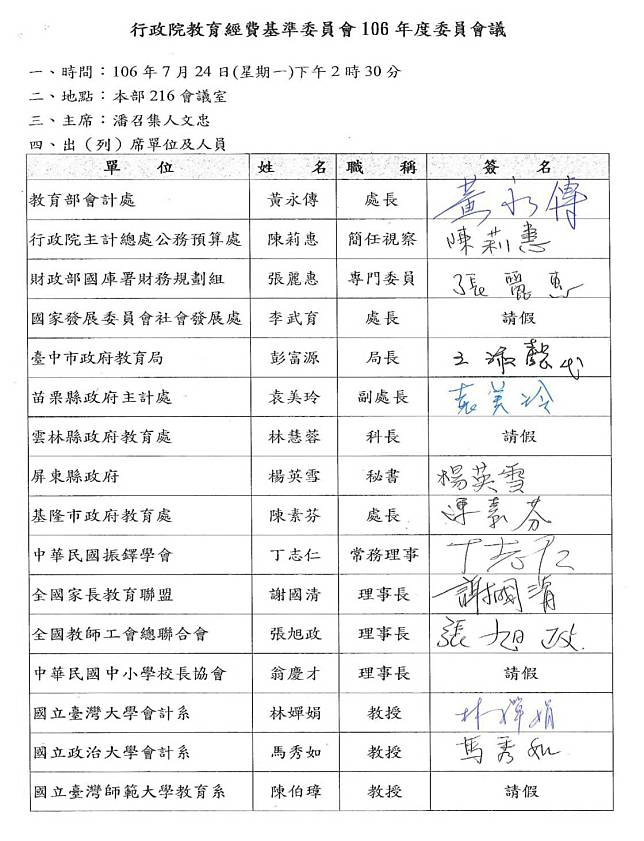 行政院教育經費基準委員會106年度委員會議
一、時間：106年7月24日(星期一)下午2時30分
二、地點：本部216會議室
三、主席：潘召集人文忠
四、出（列）席單位及人員
單位 姓名 職稱 簽名
教育部會計處 黃永傳 處長 黃永傳
行政院主計總處公務預算處 陳莉惠 簡任視察 陳莉惠
財政部國庫署財務規劃組 張麗惠 專門委員 張麗惠
國家發展委員會社會發展處 李武育 處長 請假
臺中市政府教育局 彭富源 局長 王淑懿代
苗栗縣政府主計處 袁美玲 副處長 袁美玲
雲林縣政府教育處 林慧蓉 科長 請假
屏東縣政府 楊英雪 秘書 楊英雪
基隆市政府教育處 陳素芬 處長 陳素芬
中華民國振鐸學會 丁志仁 常務理事 丁志仁
全國家長教育聯盟 謝國清 理事長 謝國清
全國教師工會總聯合會 張旭政 理事長 張旭政
中華民國中小學校長協會 翁慶才 理事長 請假
國立臺灣大學會計系 林嬋娟 教授 林嬋娟
國立政治大學會計系 馬秀如 教授 馬秀如
國立臺灣師範大學教育系 陳伯璋 教授 請假